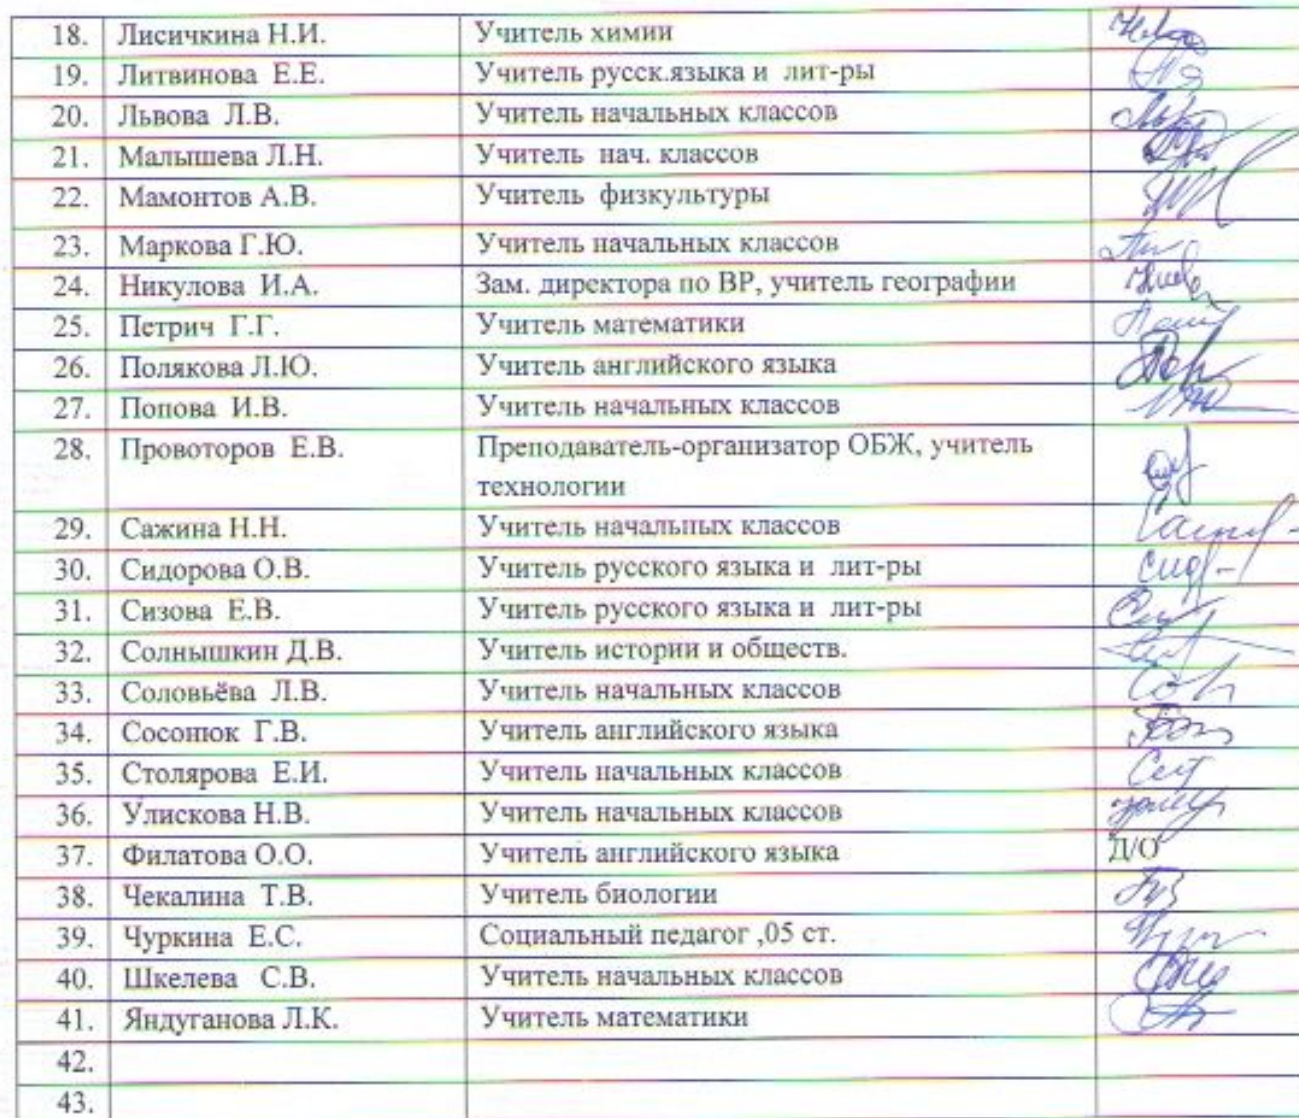 18. Лисичкина Н.И. Учитель химии
19. Литвинова Е.Е. Учитель русск.языка и лит-ры
20. Львова Л.В. Учитель начальных классов
21. Малышева Л.Н. Учитель нач. классов
22. Мамонтов А.В. Учитель физкультуры
23. Маркова Г.Ю. Учитель начальных классов
24. Никулова И.А. Зам. директора по ВР, учитель географии
25. Петрич Г.Г. Учитель математики
26. Полякова Л.Ю. Учитель английского языка
27. Попова И.В. Учитель начальных классов
28. Провоторов Е.В. Преподаватель-организатор ОБЖ, учитель
технологии
29. Сажина Н.Н. Учитель начальных классов
30. Сидорова О.В. Учитель русского языка и лит-ры
31. Сизова Е.В. Учитель русского языка и лит-ры
32. Солнышкин Д.В. Учитель истории и обществ.
33. Соловьёва Л.В. Учитель начальных классов
34. Сосонюк Г.В. Учитель английского языка
35. Столярова Е.И. Учитель начальных классов
36. Улискова Н.В. Учитель начальных классов
37. Филатова О.О. Учитель английского языка Д/О
38. Чекалина Т.В. Учитель биологии
39. Чуркина Е.С. Социальный педагог ,05 ст.
40. Шкелева С.В. Учитель начальных классов
41. Яндуганова Л.К. Учитель математики
42.
43.